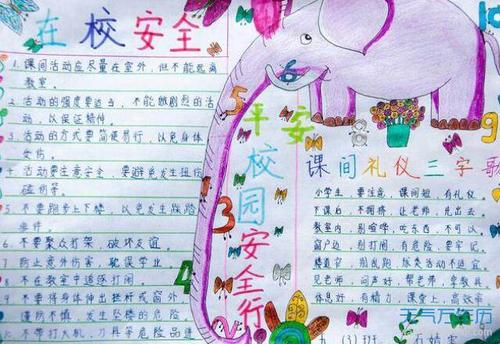 在校安全
1. 课间活动应尽量在室外,但不能远离
教室。
2. 活动的强度要适当,不能做剧烈的活
动,以保证精神。
3. 活动的方式要简便易行,以免身体
受伤。
4. 活动要注意安全,要避免发生扭伤
碰伤等
5. 不要跑步上下楼,以免发生踩踏
事件。
6. 不要聚众打架,破坏友谊。
7. 防止意外伤害,耽误学业
8. 不在教室中追逐打闹
9. 不要将身体伸出栏杆或窗外
谨防不慎,发生坠楼的危险。
不带打火机、刀具等危险品进
平安
校园安全行
5
3
4
6
9
课间礼仪三字歌
小学生,要注意,课间短,有礼仪。
下课后,不拥挤,让老师,先出去
教室内,别喧哗,吃东西,不可以
窗户边,别打闹,有危险,要牢记。
楼道窄,别乱跑,
见老师,问声好,帮老师,拿教具
休息好,有精力,课堂上,高效率
(3)班
天气万年历